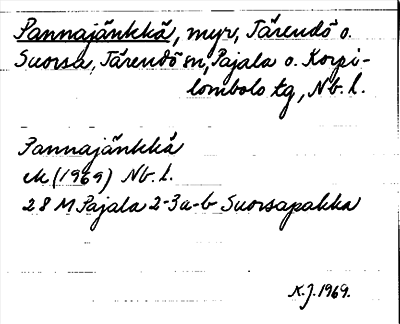 Pannajänkkä, myr, Tärendö o.
Suorsa, Tärendö sn, Pajala o. Korpi-
lombolo tg, Nb. l.
Pannajänkkä
ek (1969) Nb. l.
28 M Pajala 2-3 a-b Suorsapakka
K. J. 1969.